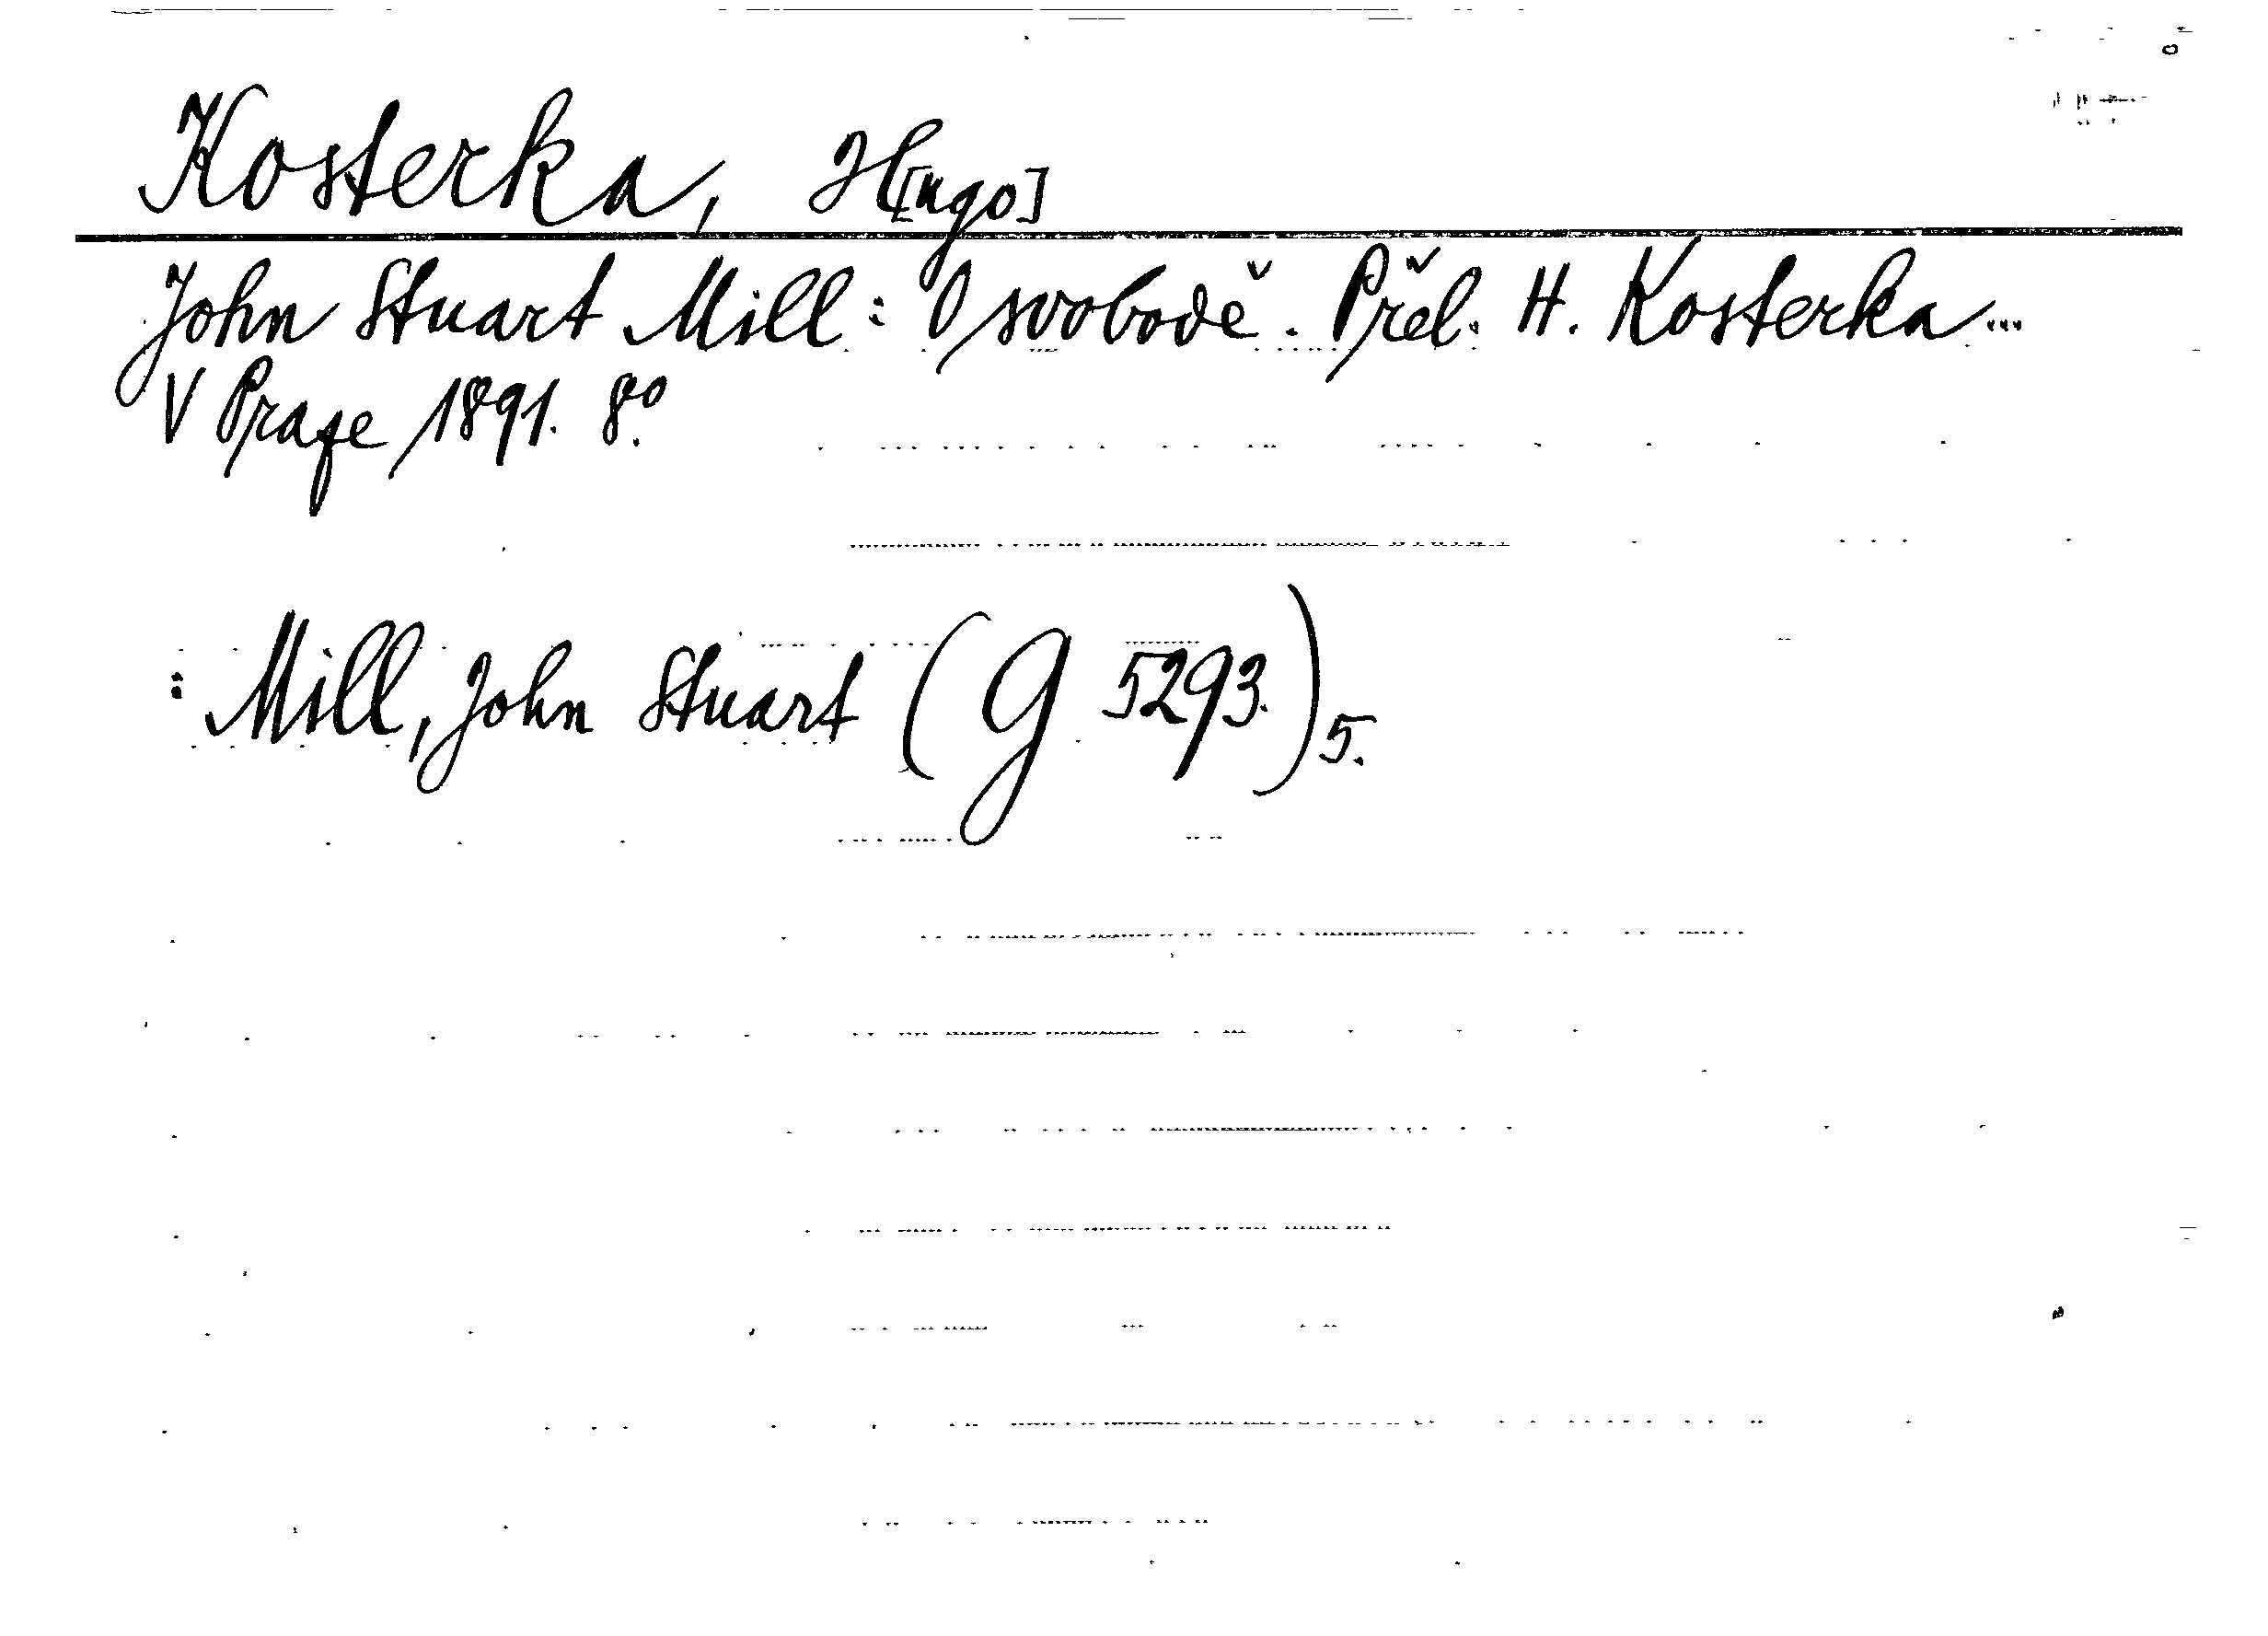 Kosterka, H[ugo]
John Stuart Mill: O svobodě. Přel. H. Kosterka...
V Praze 1891. 8º.
: Mill, John Stuart (G 5293.)5.